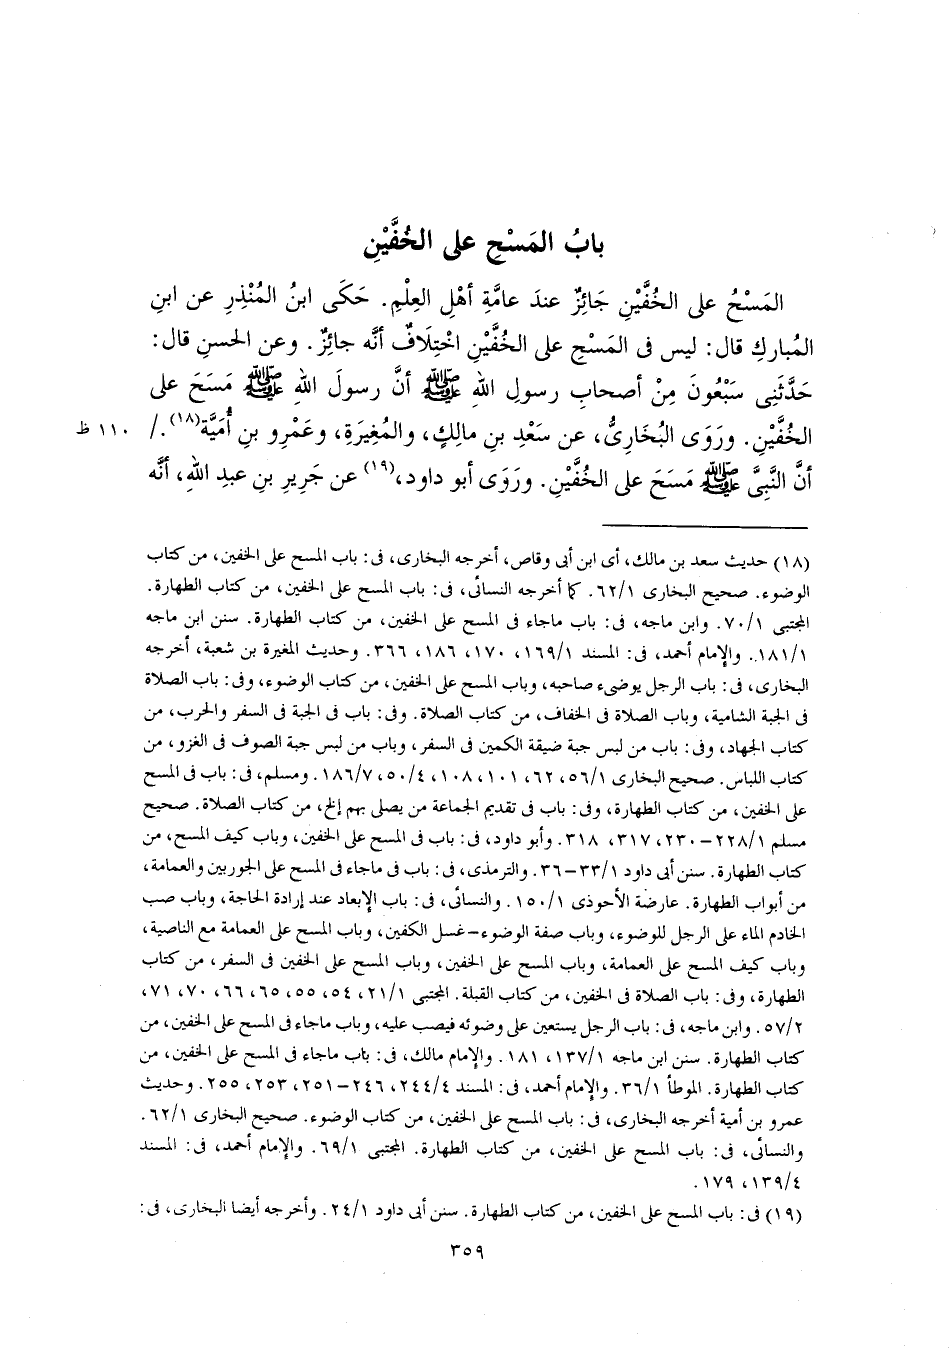 بابُ المَسْحِ على الخُفَّيْنِ
المَسْحُ على الخُفَّيْنِ جَائِزٌ عندَ عامَّةِ أهْلِ العِلْمِ. حَكَى ابنُ المُنْذِرِ عن ابنِ
المُبارَكِ قال: ليس فى المَسْحِ على الخُفَّيْنِ اخْتِلَافٌ أنَّه جائِزٌ. وعن الحسنِ قال:
حَدَّثَنِى سَبْعُونَ مِنْ أصحابِ رسولِ اللهِ ﷺ أنَّ رسولَ اللهِ ﷺ مَسَحَ على
الخُفَّيْنِ. ورَوَى البُخَارِىُّ، عن سَعْدِ بنِ مالِكٍ، والمُغِيرَةِ، وعَمْرِو بنِ أُمَيَّة(١٨)./ ١١٠ظ
أنَّ النَّبِىَّ ﷺ مَسَحَ على الخُفَّيْنِ. ورَوَى أبو داود،(١٩) عن جَرِيرِ بنِ عبدِ اللهِ، أنَّه
(١٨) حديث سعد بن مالك، أى ابن أبى وقاص، أخرجه البخارى، فى: باب المسح على الخفين، من كتاب
الوضوء. صحيح البخارى ٦٢/١. كما أخرجه النسائى، فى: باب المسح على الخفين، من كتاب الطهارة.
المجتبى ٧٠/١. وابن ماجه، فى: باب ماجاء فى المسح على الخفين، من كتاب الطهارة. سنن ابن ماجه
١٨١/١. والإمام أحمد، فى: المسند ١٦٩/١، ١٧٠، ١٨٦، ٣٦٦. وحديث المغيرة بن شعبة، أخرجه
البخارى، فى: باب الرجل يوضىء صاحبه، وباب المسح على الخفين، من كتاب الوضوء، وفى: باب الصلاة
فى الجبة الشامية، وباب الصلاة فى الخفاف، من كتاب الصلاة. وفى: باب فى الجبة فى السفر والحرب، من
كتاب الجهاد، وفى: باب من لبس جبة ضيقة الكمين فى السفر، وباب من لبس جبة الصوف فى الغزو، من
كتاب اللباس. صحيح البخارى ٥٦/١، ٦٢، ١٠١، ١٠٨، ٥٠/٤، ١٨٦/٧. ومسلم، فى: باب فى المسح
على الخفين، من كتاب الطهارة، وفى: باب فى تقديم الجماعة من يصلى بهم إلخ، من كتاب الصلاة. صحيح
مسلم ٢٢٨/١-٢٣٠، ٣١٧، ٣١٨. وأبو داود، فى: باب فى المسح على الخفين، وباب كيف المسح، من
كتاب الطهارة. سنن أبى داود ٣٣/١-٣٦. والترمذى، فى: باب فى ماجاء فى المسح على الجوربين والعمامة،
من أبواب الطهارة. عارضة الأحوذى ١٥٠/١. والنسائى، فى: باب الإبعاد عند إرادة الحاجة، وباب صب
الخادم الماء على الرجل للوضوء، وباب صفة الوضوء-غسل الكفين، وباب المسح على العمامة مع الناصية،
وباب كيف المسح على العمامة، وباب المسح على الخفين، وباب المسح على الخفين فى السفر، من كتاب
الطهارة، وفى: باب الصلاة فى الخفين، من كتاب القبلة. المجتبى ٢١/١، ٥٤، ٥٥، ٦٥، ٦٦، ٧٠، ٧١،
٥٧/٢. وابن ماجه، فى: باب الرجل يستعين على وضوئه فيصب عليه، وباب ماجاء فى المسح على الخفين، من
كتاب الطهارة. سنن ابن ماجه ١٣٧/١، ١٨١. والإمام مالك، فى: باب ماجاء فى المسح على الخفين، من
كتاب الطهارة. الموطأ ٣٦/١. والإمام أحمد، فى: المسند ٢٤٤/٤، ٢٤٦-٢٥١، ٢٥٣، ٢٥٥. وحديث
عمرو بن أمية أخرجه البخارى، فى: باب المسح على الخفين، من كتاب الوضوء. صحيح البخارى ٦٢/١.
والنسائى، فى: باب المسح على الخفين، من كتاب الطهارة. المجتبى ٦٩/١. والإمام أحمد، فى: المسند
١٣٩/٤، ١٧٩.
(١٩) فى: باب المسح على الخفين، من كتاب الطهارة. سنن أبى داود ٢٤/١. وأخرجه أيضا البخارى، فى:
٣٥٩